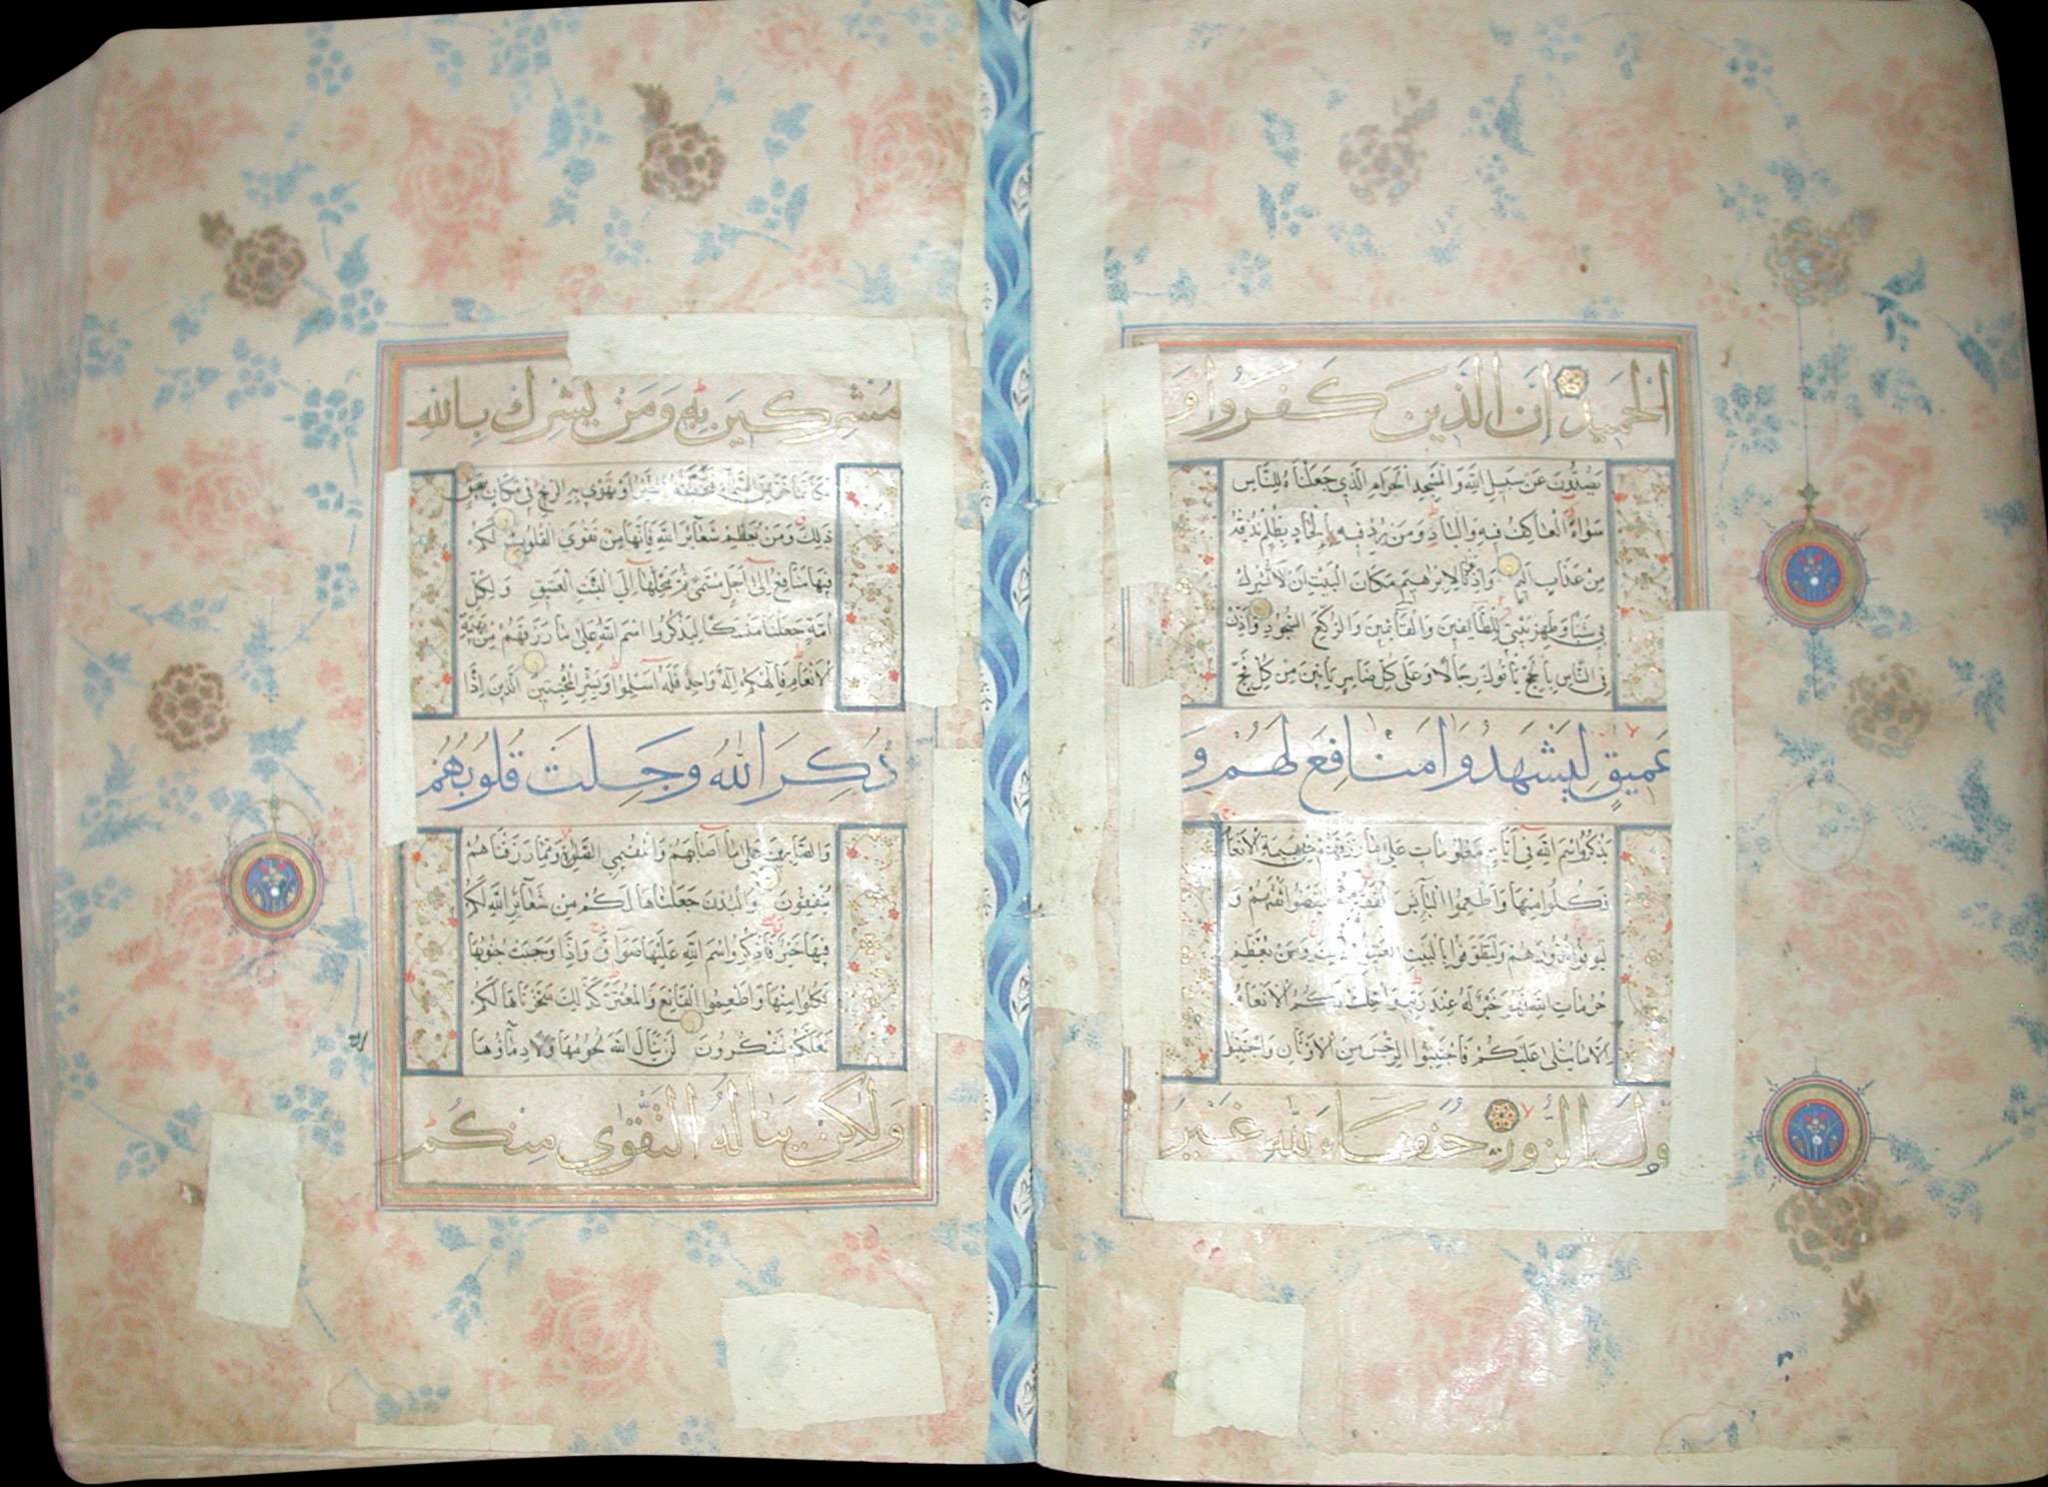 الْحَمِيدِ اِنَّ الَّذِينَ كَفَرُوا وَ
يَصُدُّونَ عَنْ سَبِيلِ اللّٰهِ وَالْمَسْجِدِ الْحَرَامِ الَّذِي جَعَلْنَاهُ لِلنَّاسِ
سَوَاءً الْعَاكِفُ فِيهِ وَالْبَادِ وَمَنْ يُرِدْ فِيهِ بِاِلْحَادٍ بِظُلْمٍ نُذِقْهُ
مِنْ عَذَابٍ اَلِيمٍ وَاِذْ بَوَّأْنَا لِاِبْرٰهِيمَ مَكَانَ الْبَيْتِ اَنْ لَا تُشْرِكْ
بِي شَيْئًا وَطَهِّرْ بَيْتِيَ لِلطَّائِفِينَ وَالْقَائِمِينَ وَالرُّكَّعِ السُّجُودِ وَاَذِّنْ
فِي النَّاسِ بِالْحَجِّ يَأْتُوكَ رِجَالًا وَعَلٰى كُلِّ ضَامِرٍ يَأْتِينَ مِنْ كُلِّ فَجٍّ
عَمِيقٍ لِيَشْهَدُوا مَنَافِعَ لَهُمْ وَ
يَذْكُرُوا اسْمَ اللّٰهِ فِي اَيَّامٍ مَعْلُومَاتٍ عَلٰى مَا رَزَقَهُمْ مِنْ بَهِيمَةِ الْاَنْعَامِ
فَكُلُوا مِنْهَا وَاَطْعِمُوا الْبَائِسَ الْفَقِيرَ ثُمَّ لْيَقْضُوا تَفَثَهُمْ وَ
لْيُوفُوا نُذُورَهُمْ وَلْيَطَّوَّفُوا بِالْبَيْتِ الْعَتِيقِ ذٰلِكَ وَمَنْ يُعَظِّمْ
حُرُمَاتِ اللّٰهِ فَهُوَ خَيْرٌ لَهُ عِنْدَ رَبِّهِ وَاُحِلَّتْ لَكُمُ الْاَنْعَامُ
اِلَّا مَا يُتْلٰى عَلَيْكُمْ فَاجْتَنِبُوا الرِّجْسَ مِنَ الْاَوْثَانِ وَاجْتَنِبُوا
قَوْلَ الزُّورِ حُنَفَاءَ لِلّٰهِ غَيْرَ
مُشْرِكِينَ بِهِ وَمَنْ يُشْرِكْ بِاللّٰهِ
فَكَاَنَّمَا خَرَّ مِنَ السَّمَاءِ فَتَخْطَفُهُ الطَّيْرُ اَوْ تَهْوِي بِهِ الرِّيحُ فِي مَكَانٍ سَحِيقٍ
ذٰلِكَ وَمَنْ يُعَظِّمْ شَعَائِرَ اللّٰهِ فَاِنَّهَا مِنْ تَقْوَى الْقُلُوبِ لَكُمْ
فِيهَا مَنَافِعُ اِلٰى اَجَلٍ مُسَمًّى ثُمَّ مَحِلُّهَا اِلَى الْبَيْتِ الْعَتِيقِ وَلِكُلِّ
اُمَّةٍ جَعَلْنَا مَنْسَكًا لِيَذْكُرُوا اسْمَ اللّٰهِ عَلٰى مَا رَزَقَهُمْ مِنْ بَهِيمَةِ
الْاَنْعَامِ فَاِلٰهُكُمْ اِلٰهٌ وَاحِدٌ فَلَهُ اَسْلِمُوا وَبَشِّرِ الْمُخْبِتِينَ الَّذِينَ اِذَا
ذُكِرَ اللّٰهُ وَجِلَتْ قُلُوبُهُمْ
وَالصَّابِرِينَ عَلٰى مَا اَصَابَهُمْ وَالْمُقِيمِي الصَّلٰوةِ وَمِمَّا رَزَقْنَاهُمْ
يُنْفِقُونَ وَالْبُدْنَ جَعَلْنَاهَا لَكُمْ مِنْ شَعَائِرِ اللّٰهِ لَكُمْ
فِيهَا خَيْرٌ فَاذْكُرُوا اسْمَ اللّٰهِ عَلَيْهَا صَوَافَّ فَاِذَا وَجَبَتْ جُنُوبُهَا
فَكُلُوا مِنْهَا وَاَطْعِمُوا الْقَانِعَ وَالْمُعْتَرَّ كَذٰلِكَ سَخَّرْنَاهَا لَكُمْ
لَعَلَّكُمْ تَشْكُرُونَ لَنْ يَنَالَ اللّٰهَ لُحُومُهَا وَلَا دِمَاؤُهَا
وَلٰكِنْ يَنَالُهُ التَّقْوٰى مِنْكُمْ